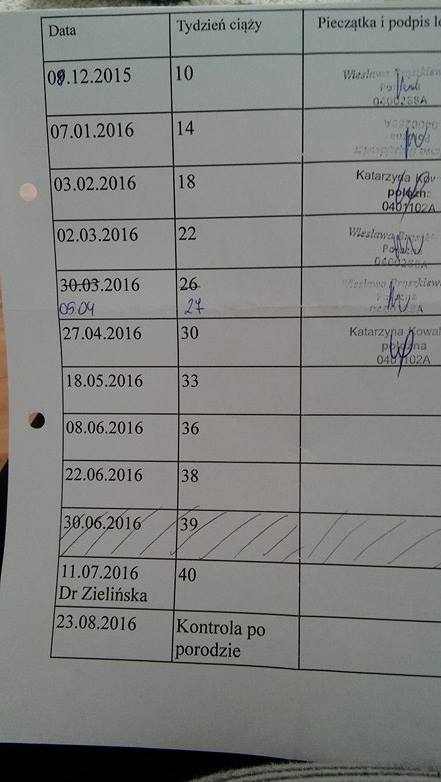 Data Tydzień ciąży Pieczątka i podpis
09.12.2015 10
Wiesława
0400288A
07.01.2016 14
0400288A
03.02.2016 18
Katarzyna
położn
0401102A
02.03.2016 22
Wiesława
30.03.2016 26
05.04 27
Wiesława
27.04.2016 30
Katarzyna Kowal
położna
0401102A
18.05.2016 33
08.06.2016 36
22.06.2016 38
30.06.2016 39
11.07.2016 40
Dr Zielińska
23.08.2016 Kontrola po
porodzie